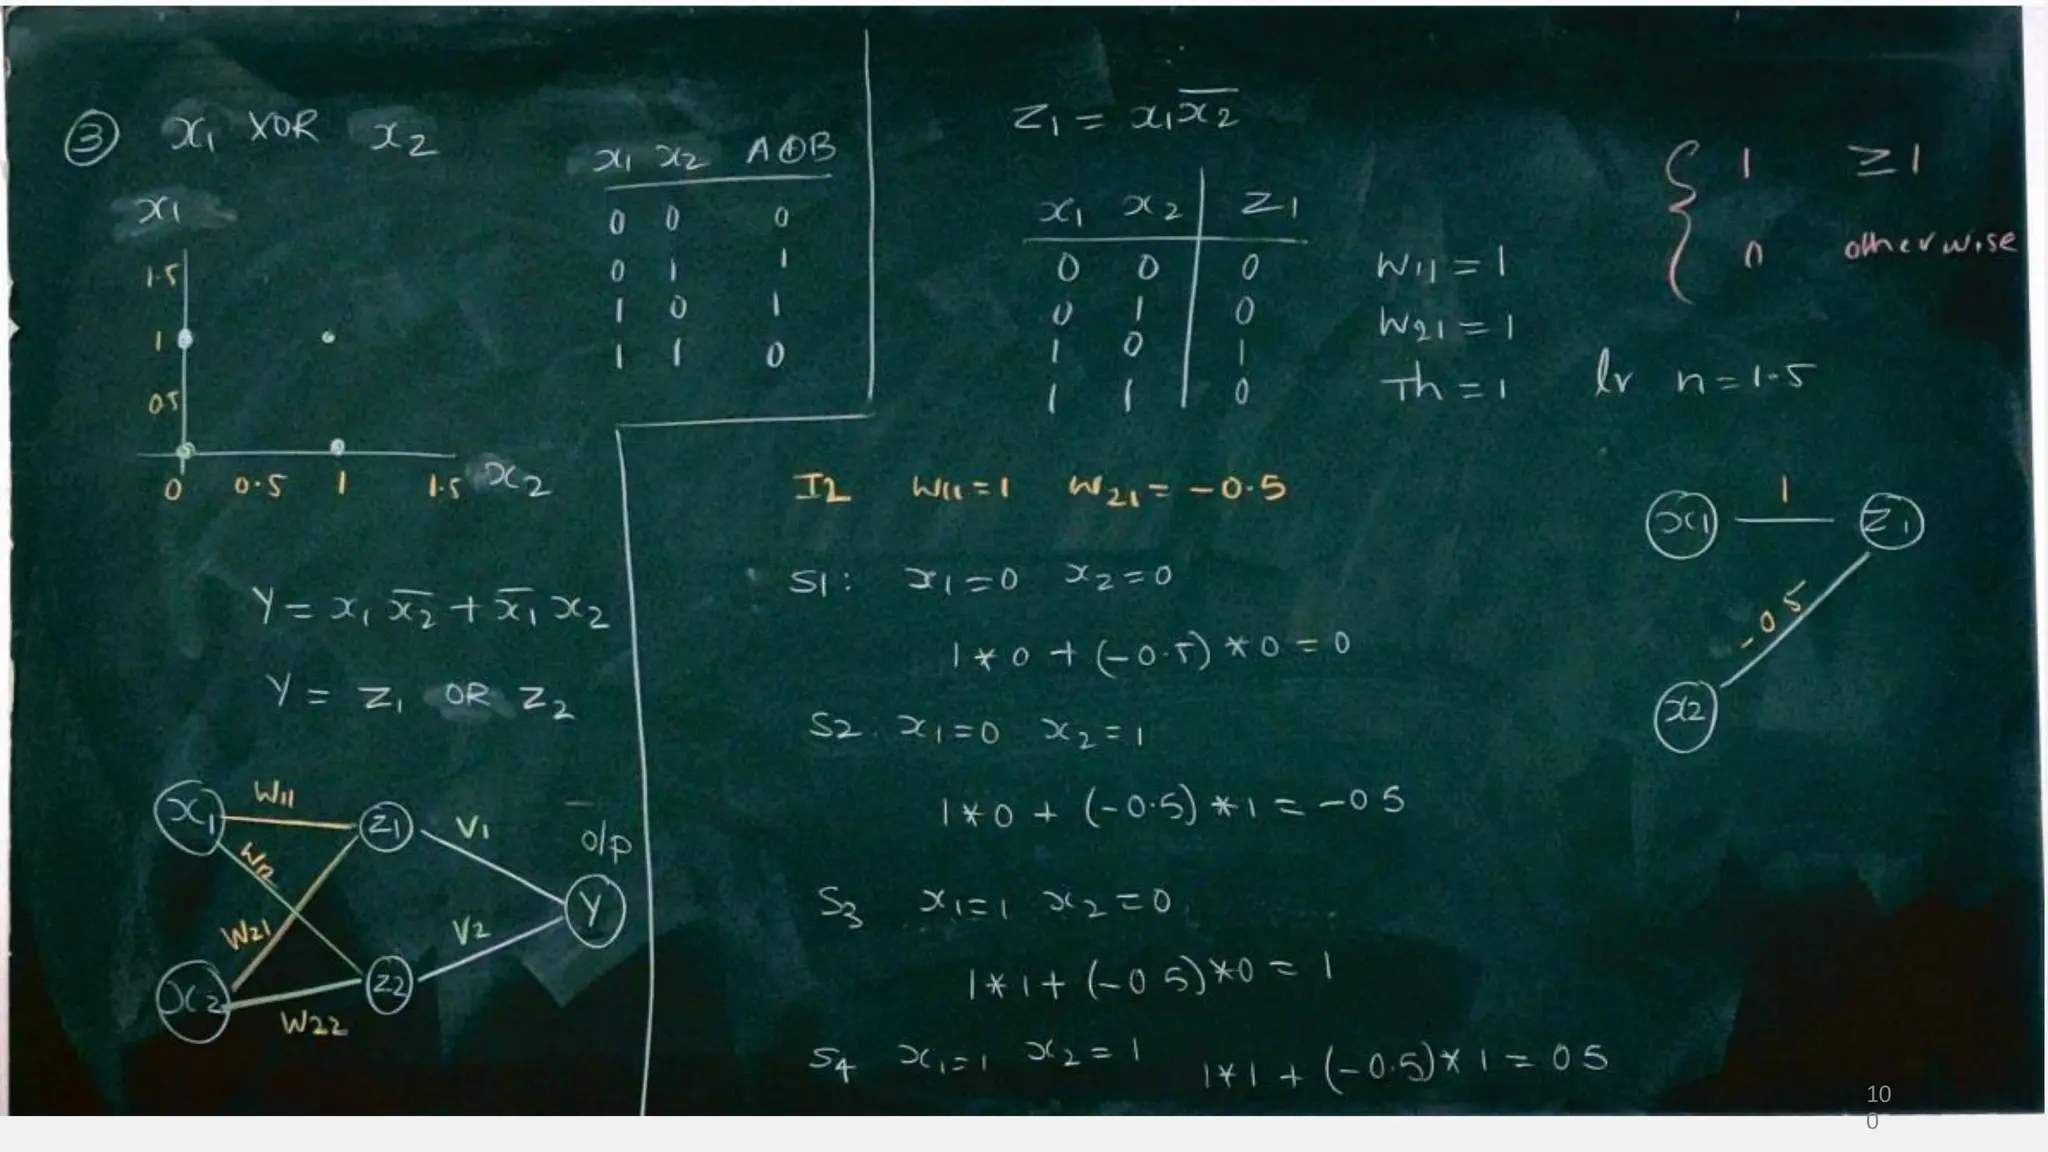 ③ x₁ XOR x₂
x₁ x₂ A⊕B
0 0 0
0 1 1
1 0 1
1 1 0
x₁
1.5
1
0.5
0 0.5 1 1.5 x₂
Y = x₁ x̅₂ + x̅₁ x₂
Y = Z₁ OR Z₂
x₁ W11 Z1 V1
W12 o/p
W21 Y
V2
x₂ W22 Z2
Z₁ = x₁x̅₂
x₁ x₂ Z₁
0 0 0
0 1 0
1 0 1
1 1 0
W11 = 1
W21 = 1
Th = 1 lr n = 1.5
{ 1 ≥ 1
0 otherwise
I2 W11 = 1 W21 = -0.5
S1: x₁ = 0 x₂ = 0
1 * 0 + (-0.5) * 0 = 0
S2. x₁ = 0 x₂ = 1
1 * 0 + (-0.5) * 1 = -0 5
S3 x₁ = 1 x₂ = 0
1 * 1 + (-0 5) * 0 = 1
S4 x₁ = 1 x₂ = 1 1 * 1 + (-0.5) * 1 = 0 5
x1 1 Z1
-0 5
x2
10
0